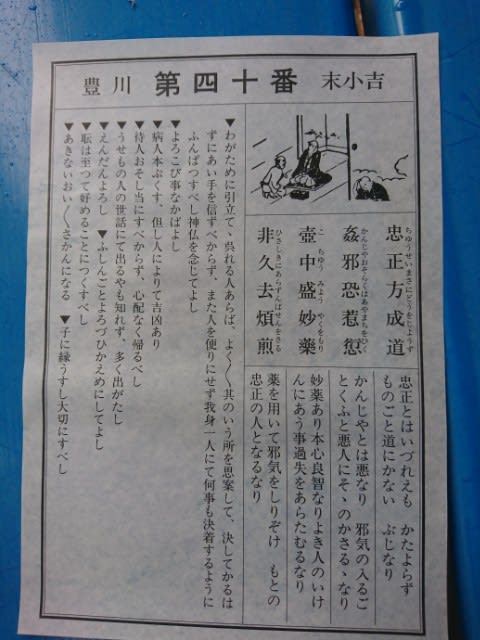 豊川 第四十番 末小吉
忠正方成道
ちゆうせいまさにどうをじようず
姦邪恐惹愆
かんじやおそらくはあやまちをひく
壺中盛妙藥
こちゆうみようやくをもり
非久去煩煎
ひさしきにあらずはんせんをさる
忠正とはいづれえも かたよらず
ものごと道にかない ぶじなり
かんじやとは悪なり 邪気の入るご
とくふと悪人にそゝのかさるゝなり
妙薬あり本心良智なりよき人のいけ
んにあう事過失をあらたむるなり
薬を用いて邪気をしりぞけ もとの
忠正の人となるなり
▼わがために引立て、呉れる人あらば、よく〳〵其のいう所を思案して、決してかるは
ずにあい手を信ずべからず、また人を便りにせず我身一人にて何事も決着するように
ふんばつすべし神仏を念じてよし
▼よろこび事なかばよし
▼病人本ぷくす、但し人によりて吉凶あり
▼待人おそし当にすべからず、心配なく帰るべし
▼うせもの人の世話にて出るやも知れず、多く出がたし
▼えんだんよろし ▼ふしんごとよろづひかえめにしてよし
▼転は至つて好めることにつくすべし
▼あきないおい〳〵さかんになる ▼子に縁うすし大切にすべし